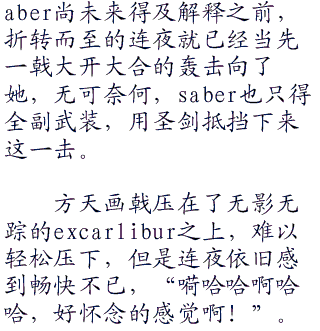 aber尚未来得及解释之前，
折转而至的连夜就已经当先
一戟大开大合的轰击向了
她，无可奈何，saber也只得
全副武装，用圣剑抵挡下来
这一击。
方天画戟压在了无影无
踪的excarlibur之上，难以
轻松压下，但是连夜依旧感
到畅快不已，“嗬哈哈啊哈
哈，好怀念的感觉啊！”。